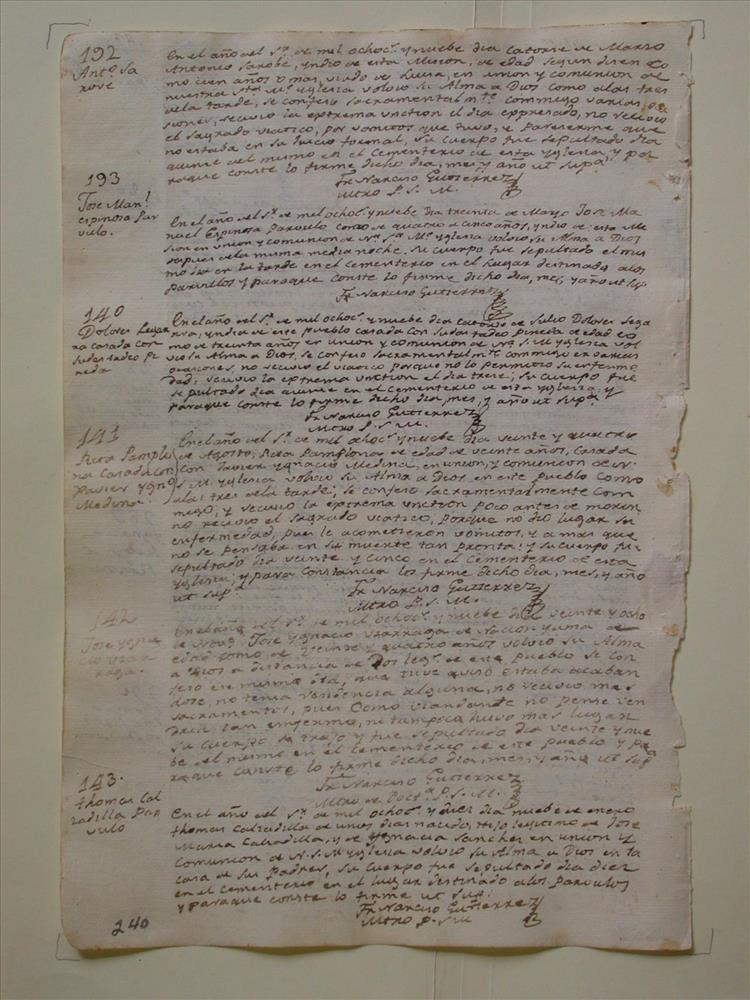 192
Antº Sa
rove
En el año del Sr. de mil ochocs. y nueve dia catorce de Marzo
Antonio Sarobe, yndio de esta Mision, de edad segun dicen co
mo cien años o mas, viudo de Luisa, en union y comunion de
nuestra Sta. Me. yglesia volvio su Alma a Dios como a las tres
de la tarde, se confeso sacramentalmte. commigo varias oca
siones, recivio la extrema unction el dia expresado, no recivio
el sagrado viatico, por vomitos que tuvo, y parecerme que
no estaba en su juicio formal, su cuerpo fue sepultado dia
quince del mismo en el Cementerio de esta yglesia, y pa
raque conste lo firme dicho dia, mes, y año ut supa.
Fr. Narciso Gutierrez
Mtro P. S. M.
193
Jose Manl.
espinosa Par
vulo.
En el año del Sr. de mil ochocs. y nuebe dia treinta de Marzo Jose Ma
nuel Espinosa Parvulo como de quatro a cinco años, yndio de esta Mi
sion en union y comunion de Nra. Sta. Me. yglesia volvio su Alma a Dios
despues de la misma media noche. Su cuerpo fue sepultado el mis
mo dia en la tarde en el cementerio en el Lugar destinado a los
parvulos y paraque conste lo firme dicho dia, mes, y año ut sup
Fr. Narciso Gutierrez
140
Dolores Legar
ra casada con
Judas tadeo Pi
neda
En el año del Sr. de mil ochocs. y nuebe dia catorce de Julio Dolores Lega
rra, yndia de este pueblo casada con Judas tadeo Pineda de edad co
mo de treinta años en union y comunion de Nra. S. M. yglesia vol
vio su Alma a Dios, se confeso sacramentalmte. commigo en varias
ocasiones, no recivio el viatico porque no lo permitio su enferme
dad; recivio la extrema unction el dia trece; su cuerpo fue
sepultado dia quince en el cementerio de esta yglesia, y
paraque conste lo firme dicho dia, mes, y año ut supa.
Fr. Narciso Gutierrez
Mtro P. S. M.
141
Rita Pamplo
na Casada con
Xavier Ygnº
Medina.
En el año del Sr. de mil ochocs. y nuebe dia veinte y quatro
de Agosto, Rita Pamplona de edad de veinte años, casada
con Javier ygnacio Medina, en union, y comunion de N.
S. M. yglesia volvio su Alma a Dios en este pueblo como
a las tres de la tarde; se confeso sacramentalmente com
migo, y recivio la extrema unction poco antes de morir,
no recivio el sagrado viatico, porque no dio lugar su
enfermedad, pues le acometieron vomitos, y a mas que
no se pensaba en su muerte tan pronta: y su cuerpo fue
sepultado dia veinte y cinco en el Cementerio de esta
yglesia; y para constancia lo firme dicho dia, mes, y año
ut supa.
Fr. Narciso Gutierrez
Mtro P. S. M.
142
Jose ygna
cio Uzar
raga.
En el año del Sr. de mil ochocs. y nuebe dia veinte y ocho
de Jose Ygnacio Uzarraga de Nacion yuma de
edad como de veinte y quatro años volvio su Alma
a Dios a distancia de Dos legs. de este pueblo se con
feso el mismo dia, que tuve aviso estaba acaban
dose, no tenia residencia alguna, no recivio mas
sacramentos, pues como viandante no pense ven
dria tan enfermo, ni tampoco huvo mas lugar
su cuerpo se trajo y fue sepultado dia veinte y nue
be del mismo en el cementerio de este pueblo y pa
raque conste lo firme dicho dia, mes, y año ut sup
Fr. Narciso Gutierrez
Mtro de Docta. P. S. M.
143.
thomas Cal
zadilla Par
vulo
En el año del Sr. de mil ochocs. y diez dia nuebe de enero
thomas Calzadilla de unos dias nacido, Hijo legitimo de Jose
Maria Calzadilla, y de ygnacia Sanchez en union y
Comunion de N. S. M. yglesia volvio su Alma a Dios en la
casa de sus Padres, su cuerpo fue sepultado dia diez
en el cementerio en el lugar destinado a los parvulos
y paraque conste lo firme ut supa.
Fr. Narciso Gutierrez
Mtro P. S. M
240